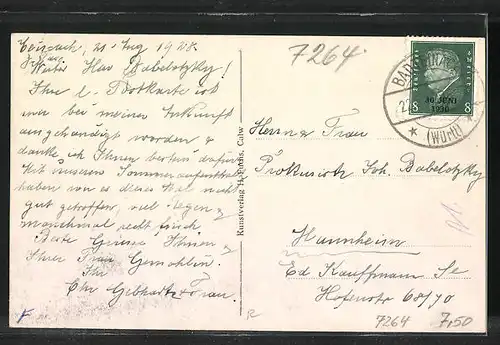 21. Aug 1928
7264.
Hav Babelotzky!
Ihre l. Postkarte ist
mir bei meiner Ankunft
ausgehändigt worden &
danke ich Ihnen bestens dafür
Mit unserem Sommeraufenthalt
haben wir es dieses Mal nicht
gut getroffen, viel Regen &
manchmal recht frisch
Beste Grüsse Ihnen &
Ihrer Frau Gemahlin.
Ihr
Chr Gebhardt & Frau.
Kunstverlag Calw
BAD
(Württ)
30. JUNI
1930
8 8
Herrn & Frau
Prokurist Joh. Babelotzky
Mannheim
Ed Kauffmann Se
Hafenstr 68/70
7264 7,50